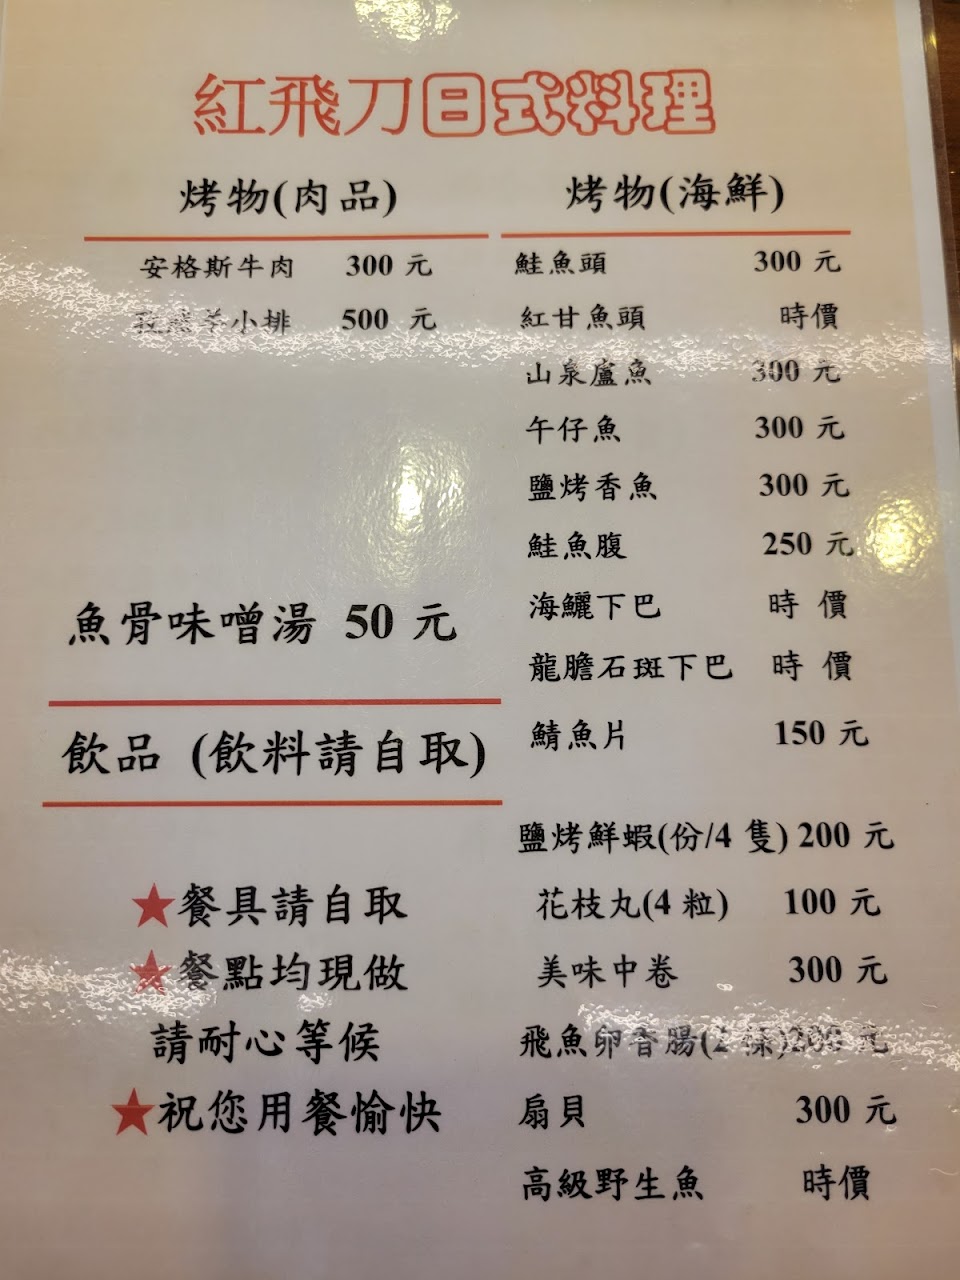 紅飛刀日式料理
烤物(肉品)
安格斯牛肉 300 元
羊小排 500 元
魚骨味噌湯 50 元
飲品 (飲料請自取)
★餐具請自取
★餐點均現做
請耐心等候
★祝您用餐愉快
烤物(海鮮)
鮭魚頭 300 元
紅甘魚頭 時價
山泉盧魚 300 元
午仔魚 300 元
鹽烤香魚 300 元
鮭魚腹 250 元
海鱺下巴 時 價
龍膽石斑下巴 時 價
鯖魚片 150 元
鹽烤鮮蝦(份/4 隻) 200 元
花枝丸(4 粒) 100 元
美味中卷 300 元
飛魚卵香腸(2 條)200 元
扇貝 300 元
高級野生魚 時價